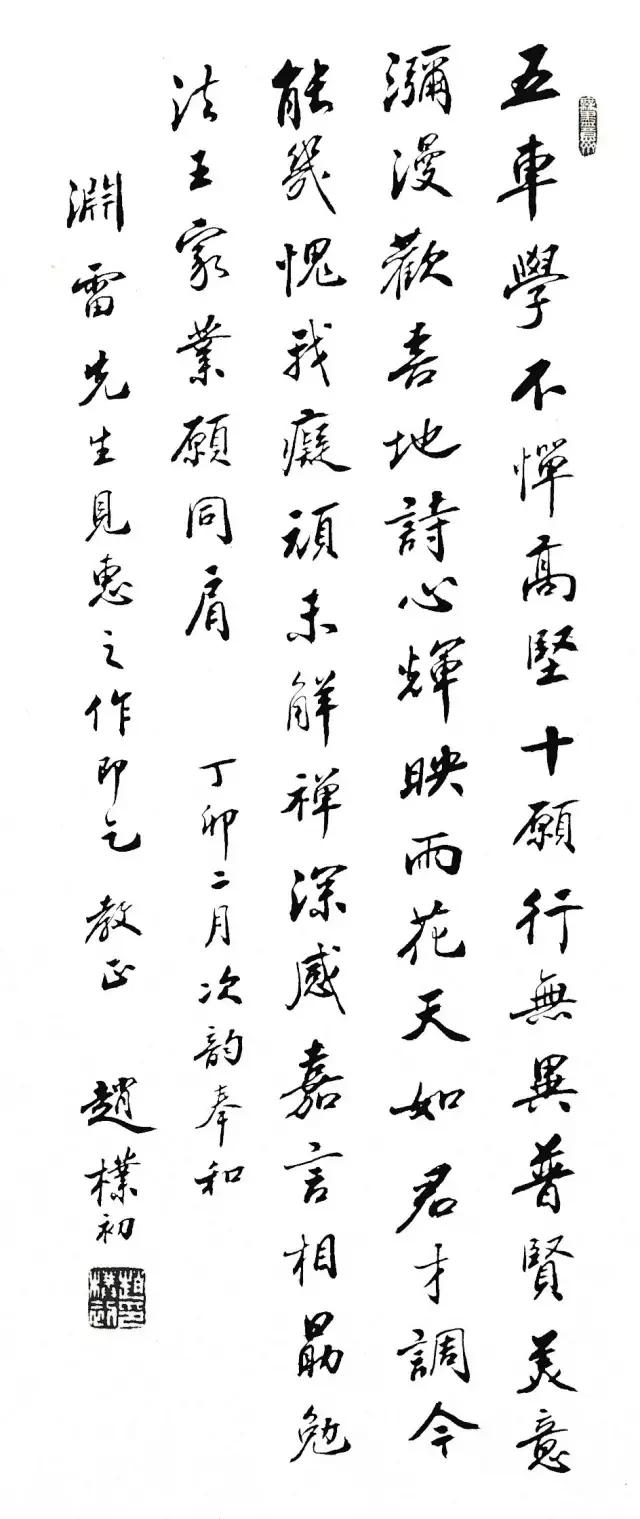 五車學不憚高堅十願行無異普賢美意
瀰漫歡喜地詩心輝映雨花天如君才調今
能幾愧我癡頑未解禅深感嘉言相勗勉
法王家業願同肩 丁卯二月次韵奉和
淵雷先生見惠之作即乞 教正 趙樸初
趙樸初印